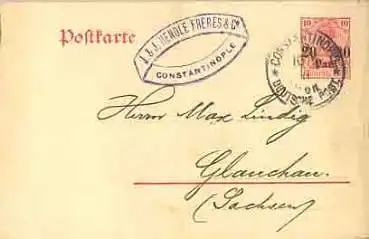 Postkarte
J. & J. HENDLE FRERES & Co
CONSTANTINOPLE
10 10
20 20
Para
CONSTANTINOPEL
DEUTSCHE POST
Herrn Max Lindig
Glauchau.
(Sachsen)